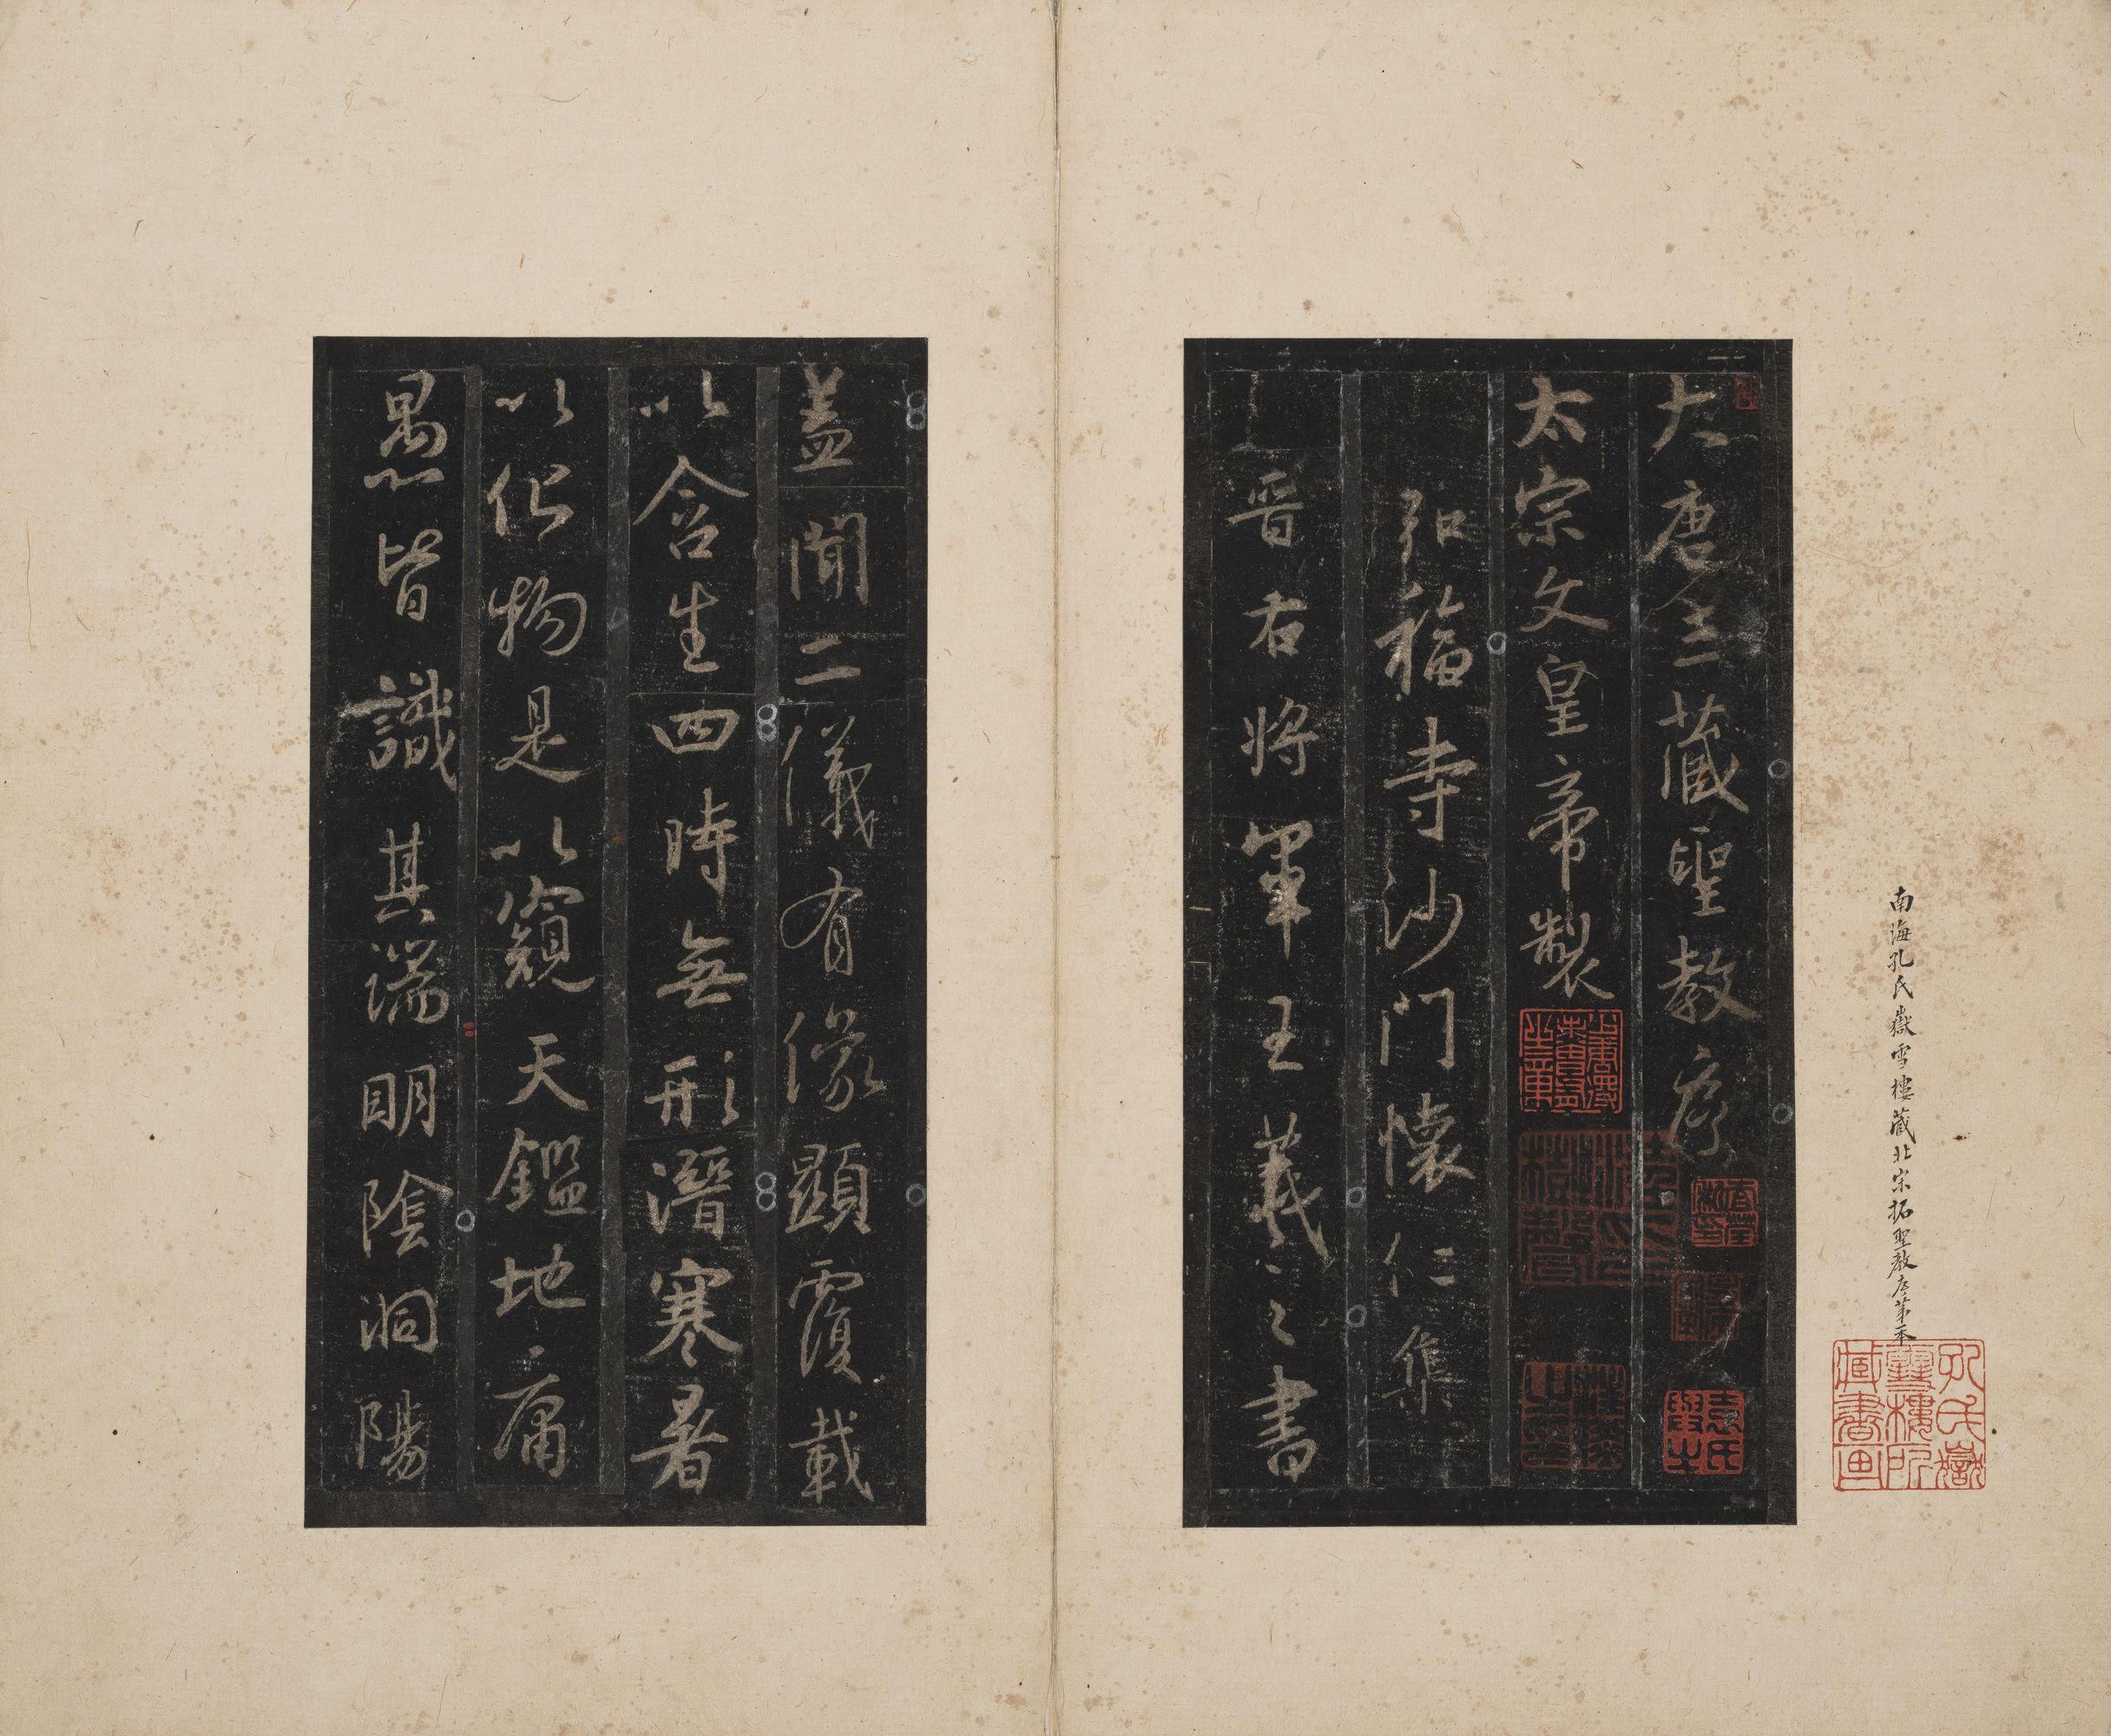 南海孔氏嶽雪樓藏北宋拓聖教序第一本
孔氏嶽雪樓所藏書画
大唐三藏聖教序
太宗文皇帝製
弘福寺沙門懷仁集
晉右將軍王羲之書
蓋聞二儀有像顯覆載
以含生四時無形潛寒暑
以化物是以窺天鑑地庸
愚皆識其端明陰洞陽